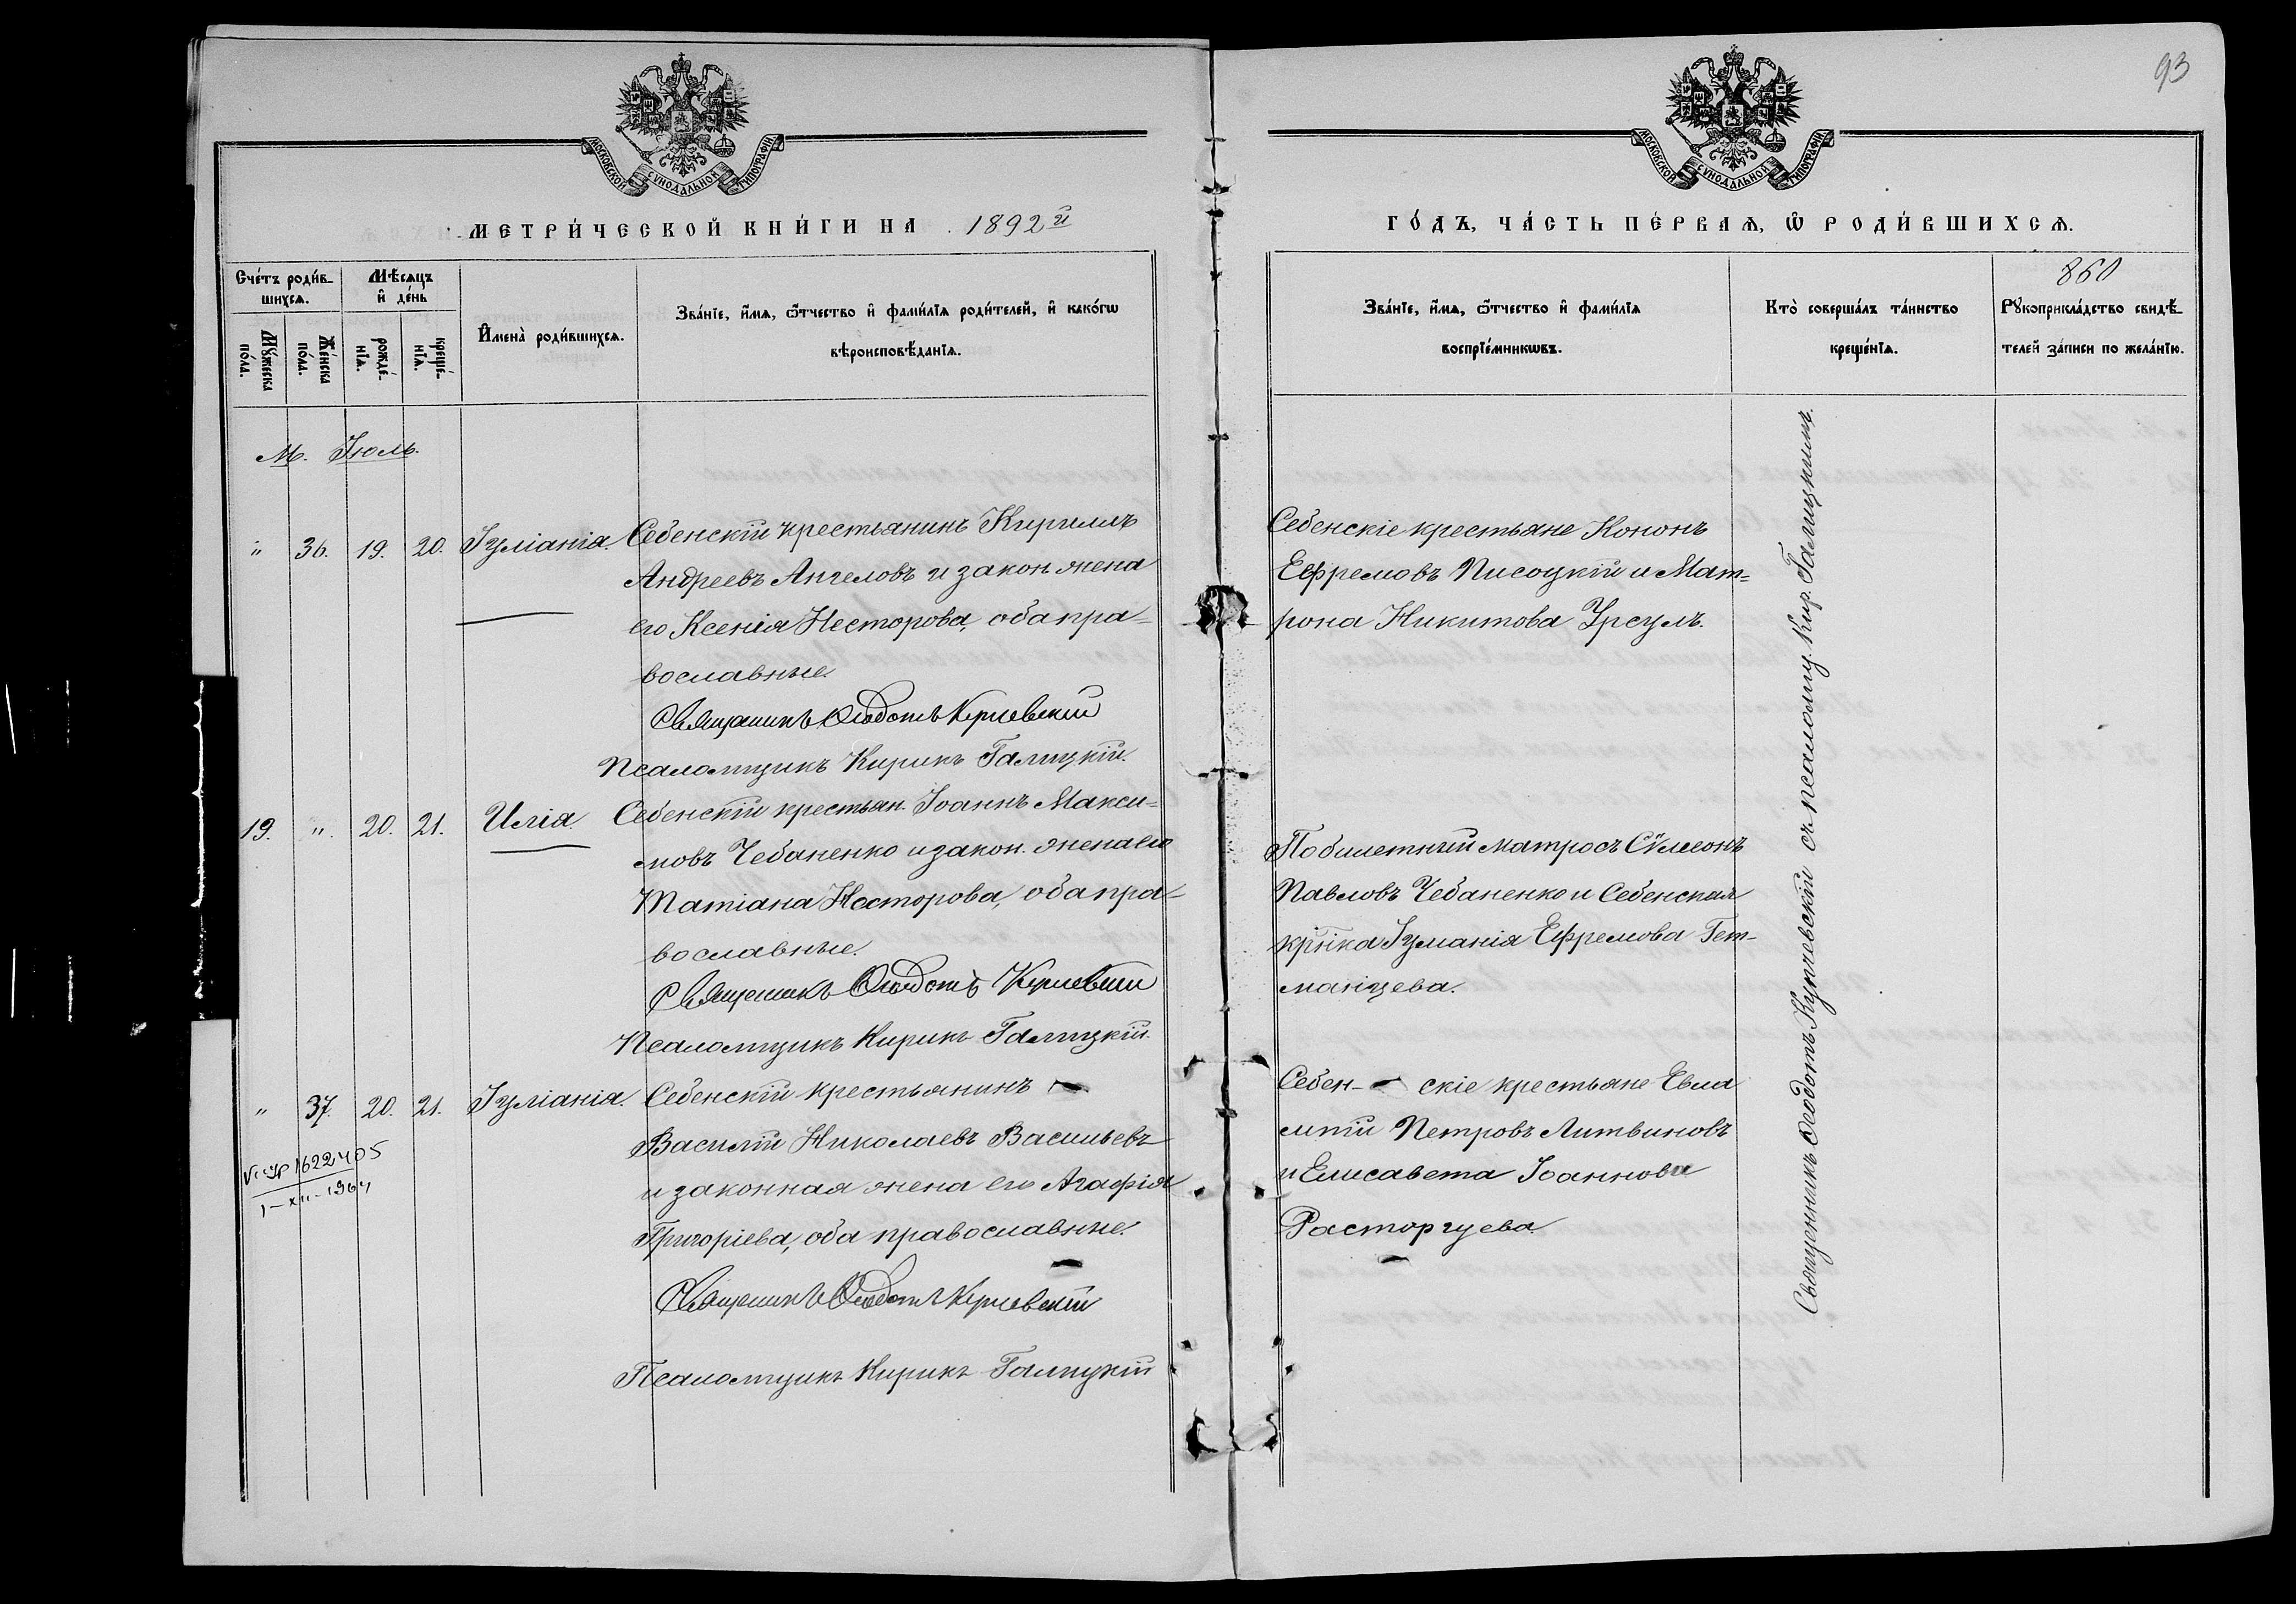 93
МОСКОВСКОЙ СѴНОДАЛЬНОЙ ТИПОГРАФІИ
МОСКОВСКОЙ СѴНОДАЛЬНОЙ ТИПОГРАФІИ
МЕТРИ́ЧЕСКОЙ КНИ́ГИ НА 1892й
ГО́ДЪ, ЧА́СТЬ ПЕ́РВАѦ, Ѡ҆ РОДИ́ВШИХСѦ.
Сче́тъ роди́в-
шихсѧ.
Мꙋ́жеска
по́ла.
Же́нска
по́ла.
Мѣ́сѧцъ
и҆ де́нь
рожде́-
нїѧ.
креще́-
нїѧ.
И҆мена̀ роди́вшихсѧ.
Зва́нїе, и҆́мѧ, ѻ҆́тчество и҆ фами́лїѧ роди́телей, и҆ како́гѡ
вѣроисповѣ́данїѧ.
Зва́нїе, и҆́мѧ, ѻ҆́тчество и҆ фами́лїѧ
воспрїе́мникѡвъ.
Кто̀ соверша́лъ та́инство
креще́нїѧ.
860
Рꙋкоприкла́дство свидѣ́-
телей за́писи по жела́нїю.
М. Іюль.
" 36. 19. 20. Іуліанія.
Себенскій крестьянинъ Кириллъ
Андреевъ Ангеловъ и закон. жена
его Ксенія Несторова, оба пра-
вославные.
Священникъ Ѳеодотъ Купчевскій
Псаломщикъ Кирикъ Галицкій.
Себенскіе крестьяне Кононъ
Ефремовъ Писоцкій и Мат-
рона Никитова Урсулъ.
19. " 20. 21. Илія.
Себенскій крестьян. Іоаннъ Макси-
мовъ Чебаненко и закон. жена его
Татіана Несторова, оба пра-
вославные.
Священникъ Ѳеодотъ Купчевскій
Псаломщикъ Кирикъ Галицкій.
Побилетный матросъ Сѵмеонъ
Павловъ Чебаненко и Себенская
кр-нка Іуліанія Ефремова Гет-
манцева.
" 37. 20. 21. Іуліанія.
1622405
1-XII-1964
Себенскій крестьянинъ
Василій Николаевъ Васильевъ
и законная жена его Агафія
Григоріева, оба православные.
Священникъ Ѳеодотъ Купчевскій
Псаломщикъ Кирикъ Галицкій
Себен- скіе крестьяне Евла
мпій Петровъ Литвиновъ
и Елисавета Іоаннова
Расторгуева.
Священникъ Ѳеодотъ Купчевскій съ псаломщ. Кир. Галицкимъ.